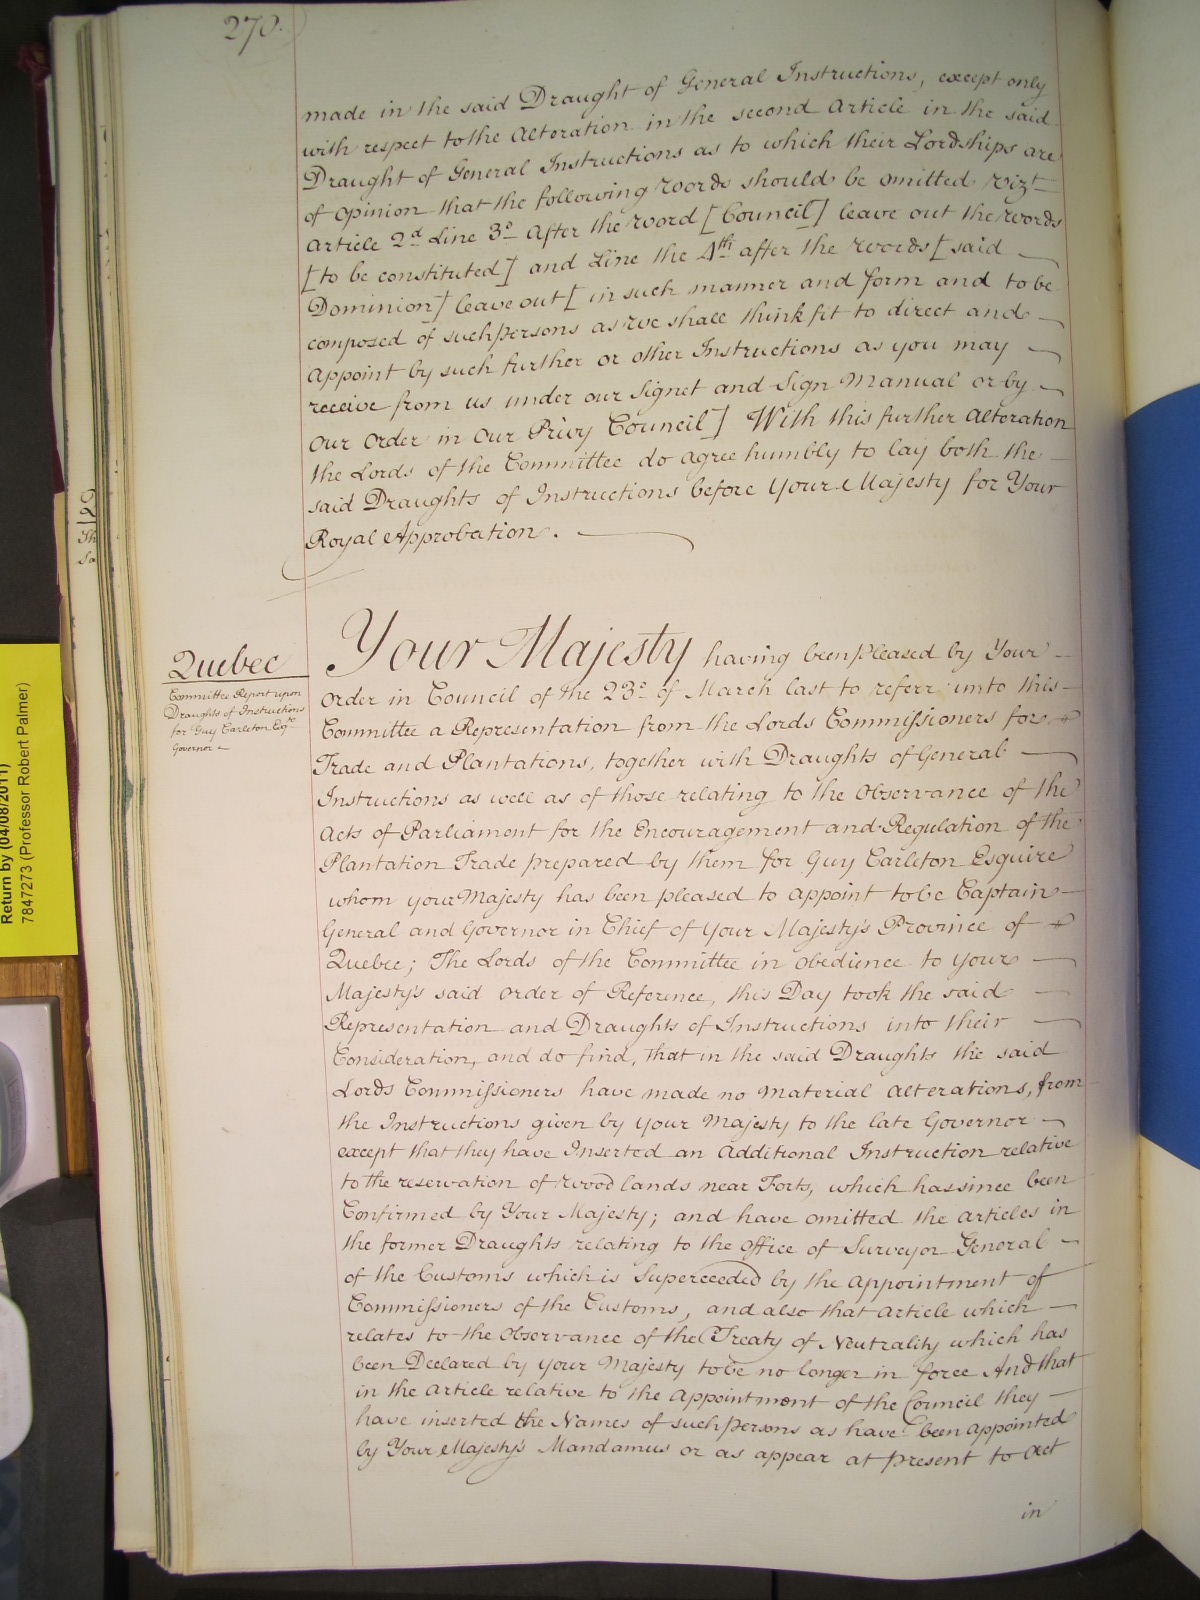 270.
made in the said Draught of General Instructions, except only
with respect to the Alteration in the second Article in the said
Draught of General Instructions as to which their Lordships are
of Opinion that the following Words should be omitted Vizt
Article 2d Line 3d After the Word [Council] leave out the Words
[to be constituted] and Line the 4th after the Words [said
Dominion] leave out [in such manner and form and to be
composed of such persons as We shall think fit to direct and
Appoint by such further or other Instructions as you may
receive from us under our Signet and Sign Manual or by
Our Order in Our Privy Council] With this further Alteration
the Lords of the Committee do agree humbly to lay both the
said Draughts of Instructions before Your Majesty for Your
Royal Approbation.
Quebec
Committee Report upon
Draughts of Instructions
for Guy Carleton Esqre
Governor
Your Majesty having been pleased by Your
Order in Council of the 23d of March last to referr unto this
Committee a Representation from the Lords Commissioners for
Trade and Plantations, together with Draughts of General
Instructions as well as of those relating to the Observance of the
Acts of Parliament for the Encouragement and Regulation of the
Plantation Trade prepared by them for Guy Carleton Esquire
whom your Majesty has been pleased to appoint to be Captain
General and Governor in Chief of Your Majesty's Province of
Quebec; The Lords of the Committee in obedience to your
Majesty's said Order of Reference, this Day took the said
Representation and Draughts of Instructions into their
Consideration, and do find, that in the said Draughts the said
Lords Commissioners have made no Material Alterations, from
the Instructions given by your Majesty to the late Governor
except that they have Inserted an Additional Instruction relative
to the reservation of Wood lands near Forts, which has since been
Confirmed by Your Majesty; and have omitted the Articles in
the former Draughts relating to the Office of Surveyor General
of the Customs which is Superceeded by the Appointment of
Commissioners of the Customs, and also that Article which
relates to the Observance of the Treaty of Neutrality which has
been Declared by your Majesty to be no longer in force And that
in the Article relative to the Appointment of the Council they
have inserted the Names of such persons as have been appointed
by Your Majesty's Mandamus or as appear at present to Act
in
Return by (04/08/2011)
7847273 (Professor Robert Palmer)